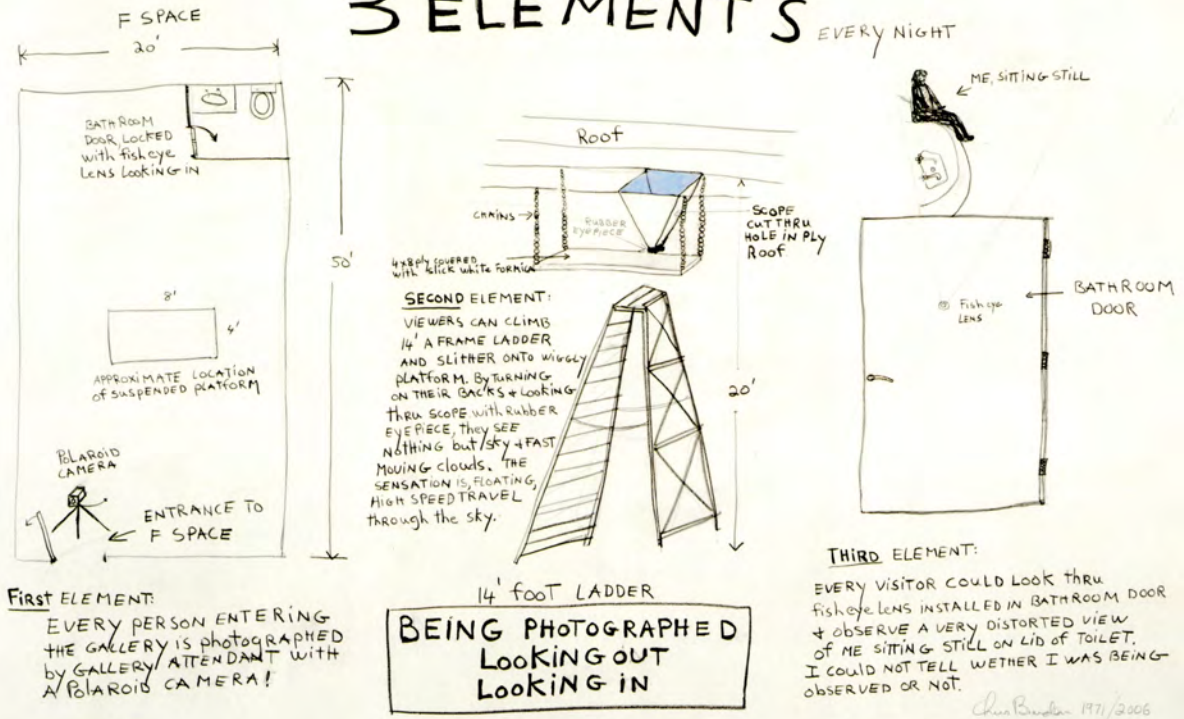 3 ELEMENTS
EVERY NIGHT
F SPACE
20'
BATHROOM
DOOR, LOCKED
with fisheye
LENS LOOKING IN
50'
8'
4'
APPROXIMATE LOCATION
of SUSPENDED PLATFORM
POLAROID
CAMERA
ENTRANCE TO
F SPACE
FIRST ELEMENT:
EVERY PERSON ENTERING
THE GALLERY IS photographed
by GALLERY ATTENDANT WITH
A POLAROID CAMERA!
ROOF
CHAINS
RUBBER
EYEPIECE
SCOPE
CUT THRU
HOLE IN PLY
ROOF
4x8 ply COVERED
with slick white FORMICA
SECOND ELEMENT:
VIEWERS CAN CLIMB
14' A FRAME LADDER
AND SLITHER ONTO WIGGLY
PLATFORM. By TURNING
ON THEIR BACKS + LOOKING
THRU SCOPE WITH RUBBER
EYEPIECE, they SEE
NOTHING but SKY + FAST
MOVING clouds. THE
SENSATION IS, FLOATING,
HIGH SPEED TRAVEL
through the sky.
20'
14' fooT LADDER
BEING PHOTOGRAPHED
LOOKING OUT
LOOKING IN
ME, SITTING STILL
Fisheye
LENS
BATHROOM
DOOR
THIRD ELEMENT:
EVERY VISITOR COULD LOOK THRU
fisheye LENS INSTALLED IN BATHROOM DOOR
+ OBSERVE A VERY DISTORTED VIEW
of ME SITTING STILL ON LID of TOILET.
I COULD NOT TELL WETHER I WAS BEING
OBSERVED OR NOT.
Chris Burden 1971/2006